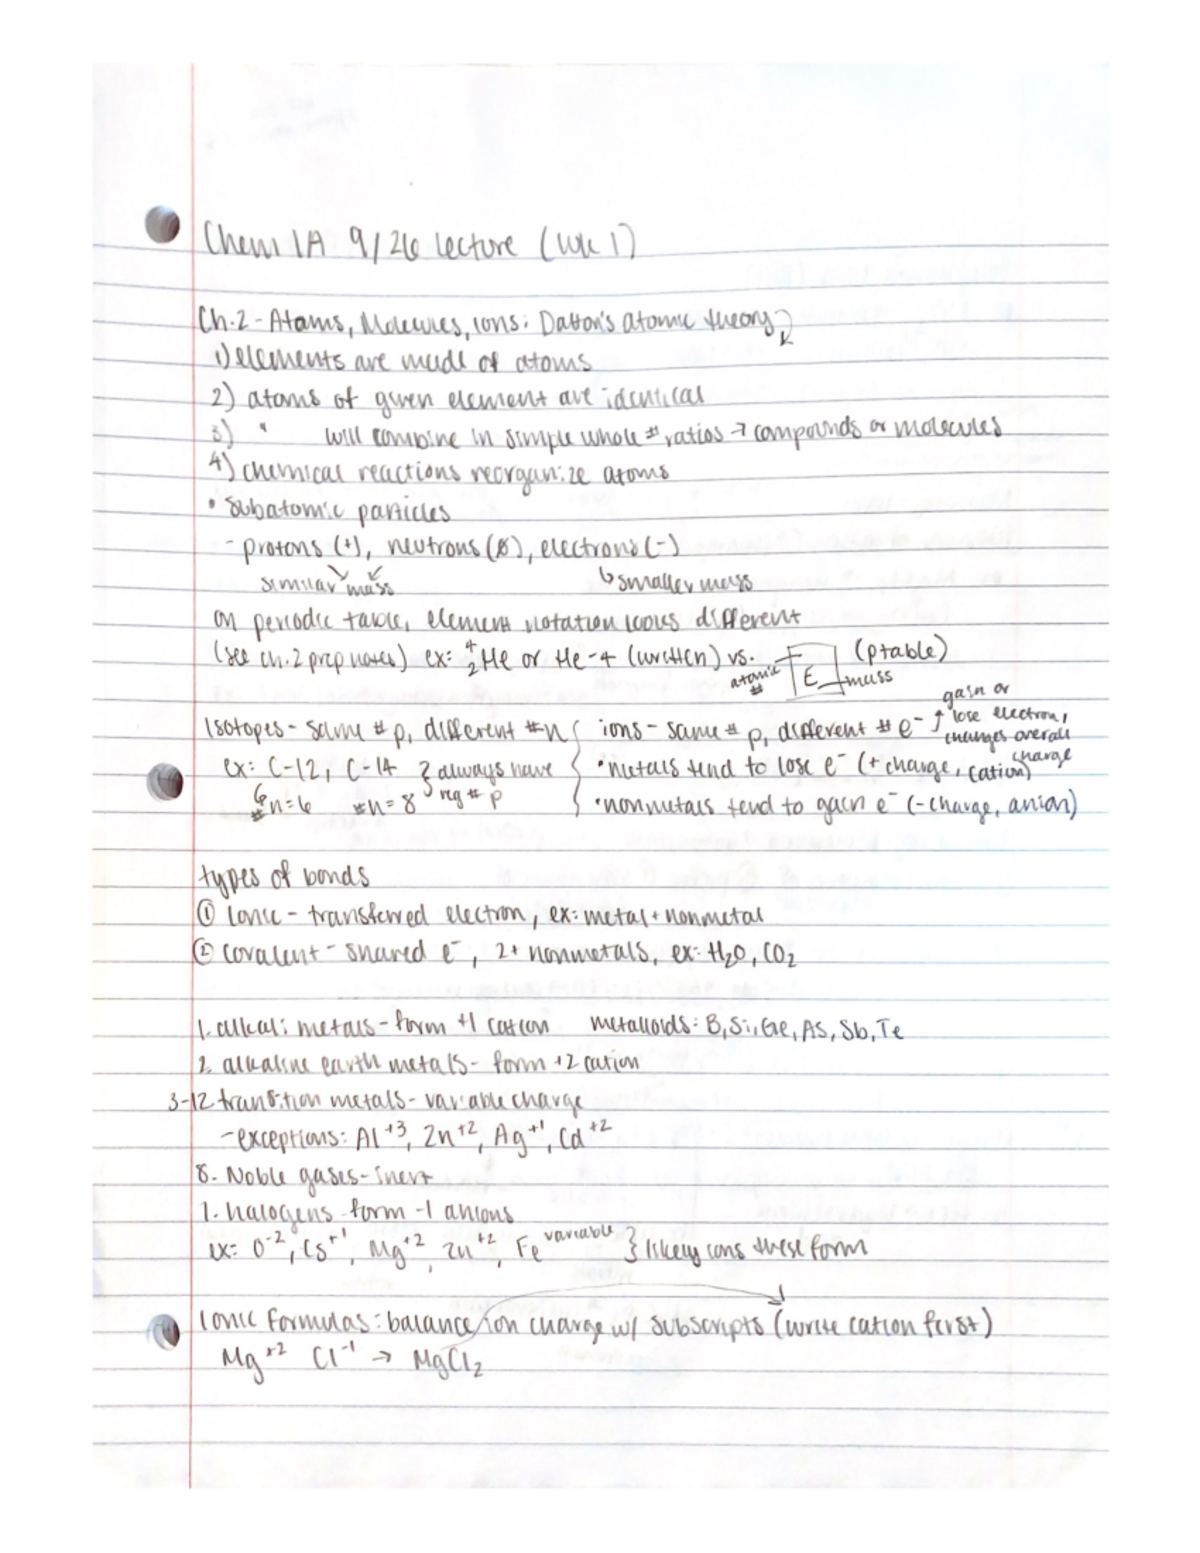 Chem 1A 9/26 lecture (wk 1)
Ch.2 - Atoms, Molecules, ions: Dalton's atomic theory
1) elements are made of atoms
2) atoms of given element are identical
3) " will combine in simple whole # ratios → compounds or molecules
4) chemical reactions reorganize atoms
• Subatomic particles
- protons (+), neutrons (ø), electrons (-)
similar mass ↳ smaller mass
on periodic table, element notation looks different
(see ch.2 prep notes) ex: ⁴₂He or He-4 (written) vs. atomic # E mass (ptable)
Isotopes - same # p, different # n
ex: C-12, C-14 } always have reg # p
6
#n=6 #n=8
ions - same # p, different # e⁻ ↑ gain or lose electron, changes overall charge
• metals tend to lose e⁻ (+ charge, cation)
• nonmetals tend to gain e⁻ (- charge, anion)
types of bonds
① Ionic - transferred electron, ex: metal + nonmetal
② covalent - shared e⁻, 2+ nonmetals, ex: H₂O, CO₂
1. alkali metals - form +1 cation metalloids: B, Si, Ge, As, Sb, Te
2. alkaline earth metals - form +2 cation
3-12 transition metals - variable charge
- exceptions: Al⁺³, Zn⁺², Ag⁺¹, Cd⁺²
8. Noble gases - inert
7. halogens form -1 anions
ex: O⁻², Cs⁺¹, Mg⁺², Zn⁺², Fe variable } likely ions these form
Ionic Formulas: balance ion charge w/ subscripts (write cation first)
Mg⁺² Cl⁻¹ → MgCl₂